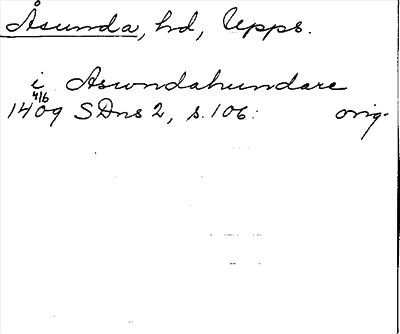 Åsunda, hd, Upps.
i Aswndahundare
4/6
1409 SDns 2, s. 106. orig.